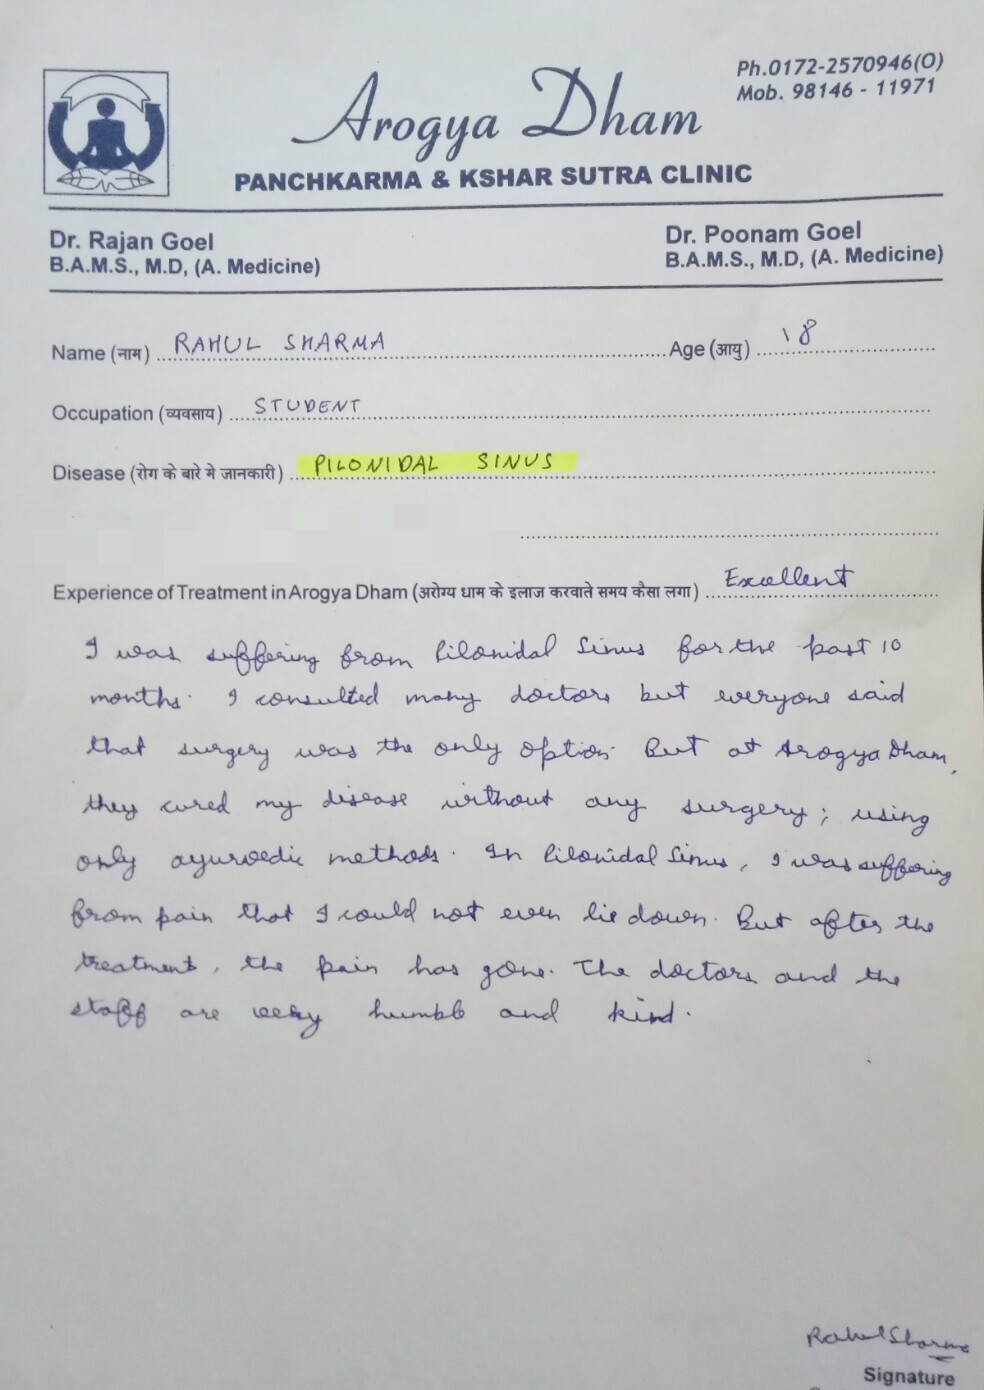 Ph.0172-2570946(O)
Mob. 98146 - 11971
Arogya Dham
PANCHKARMA & KSHAR SUTRA CLINIC
Dr. Rajan Goel
B.A.M.S., M.D, (A. Medicine)
Dr. Poonam Goel
B.A.M.S., M.D, (A. Medicine)
Name (नाम) RAHUL SHARMA Age (आयु) 18
Occupation (व्यवसाय) STUDENT
Disease (रोग के बारे मे जानकारी) PILONIDAL SINUS
Experience of Treatment in Arogya Dham (अरोग्य धाम के इलाज करवाते समय कैसा लगा) Excellent
I was suffering from Pilonidal Sinus for the past 10
months. I consulted many doctors but everyone said
that surgery was the only option. But at Arogya Dham,
they cured my disease without any surgery; using
only ayurvedic methods. In Pilonidal Sinus, I was suffering
from pain that I could not even lie down. But after the
treatment, the pain has gone. The doctors and the
staff are very humble and kind.
Rahul Sharma
Signature